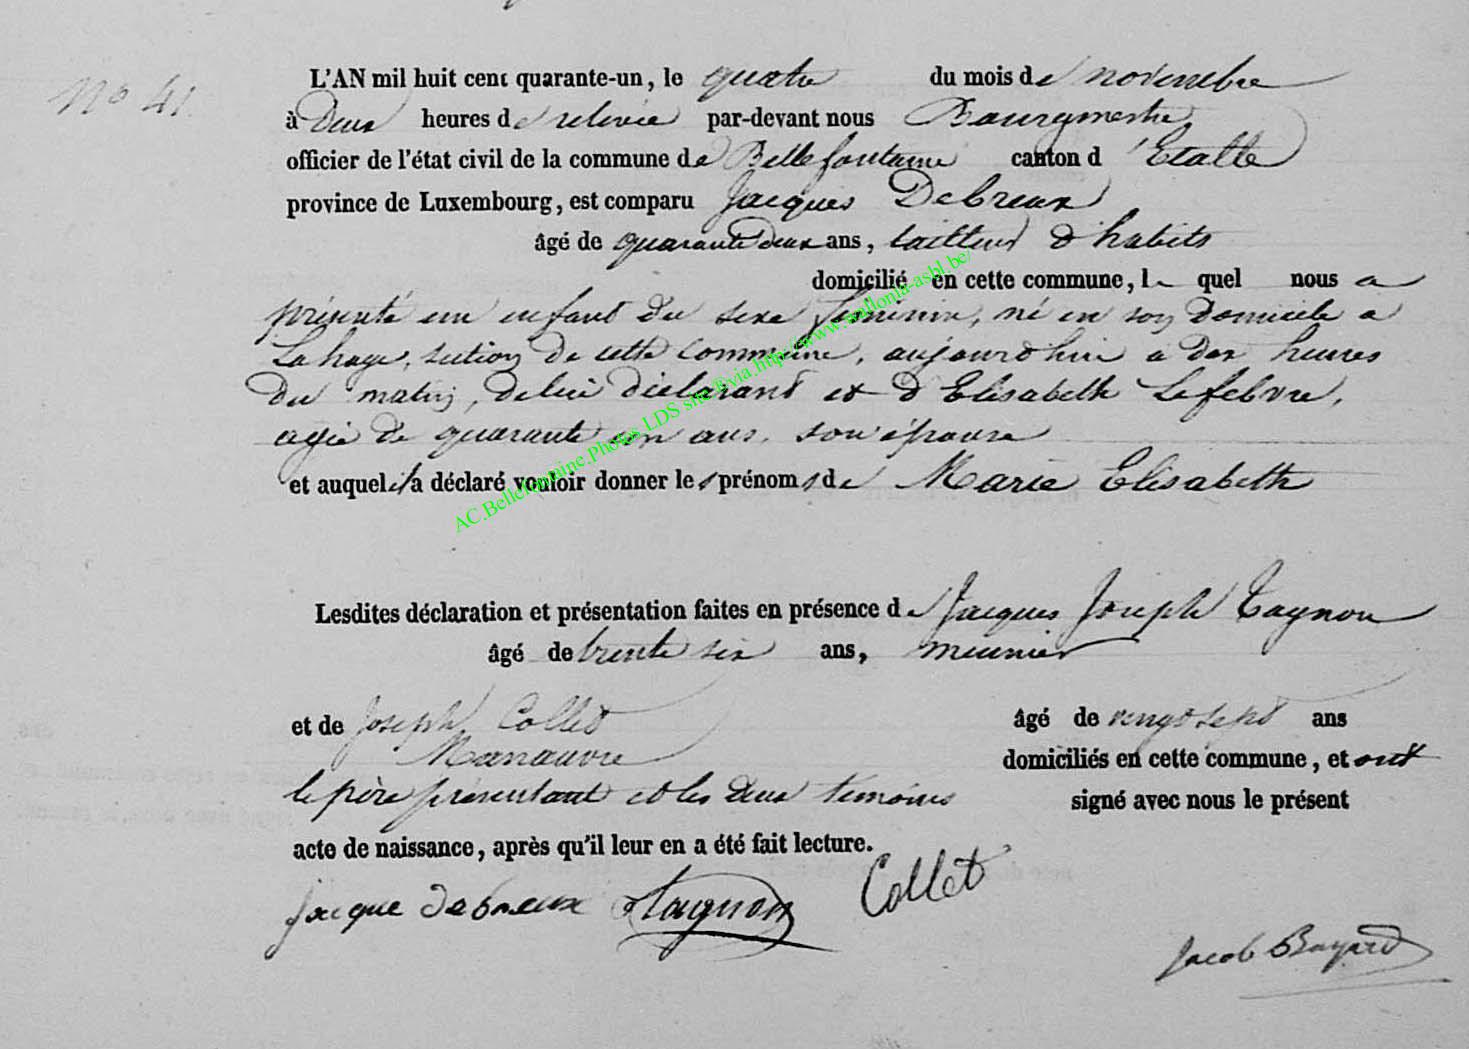 No 41.
L'AN mil huit cent quarante-un, le quatre du mois de novembre
à Deux heures de relevée par-devant nous Bourgmestre
officier de l'état civil de la commune de Bellefontaine canton d'Etalle
province de Luxembourg, est comparu Jacques Debreux
âgé de quarante deux ans, tailleur d'habits
domicilié en cette commune, lequel nous a
présenté un enfant du sexe féminin, né en son Domicile a
Lahage, section de cette Commune, aujourdhui a dex heures
Du matin, delui déclarant et d'Elisabeth Lefebvre,
agée de quarante un ans, son épouse
et auquel il a déclaré vouloir donner les prénoms de Marie Elisabeth
Lesdites déclaration et présentation faites en présence de Jacques Joseph Tagnon
âgé de trente six ans, meunier
et de Joseph Collet âgé de vengt sept ans
Manœuvre domiciliés en cette commune, et ont
le père présentant et les deux témoins signé avec nous le présent
acte de naissance, après qu'il leur en a été fait lecture.
jacque debreux Tagnon Collet
Jacob Bayard
AC.Bellefontaine.Photos LDS site Evia.http://www.wallonia-asbl.be/